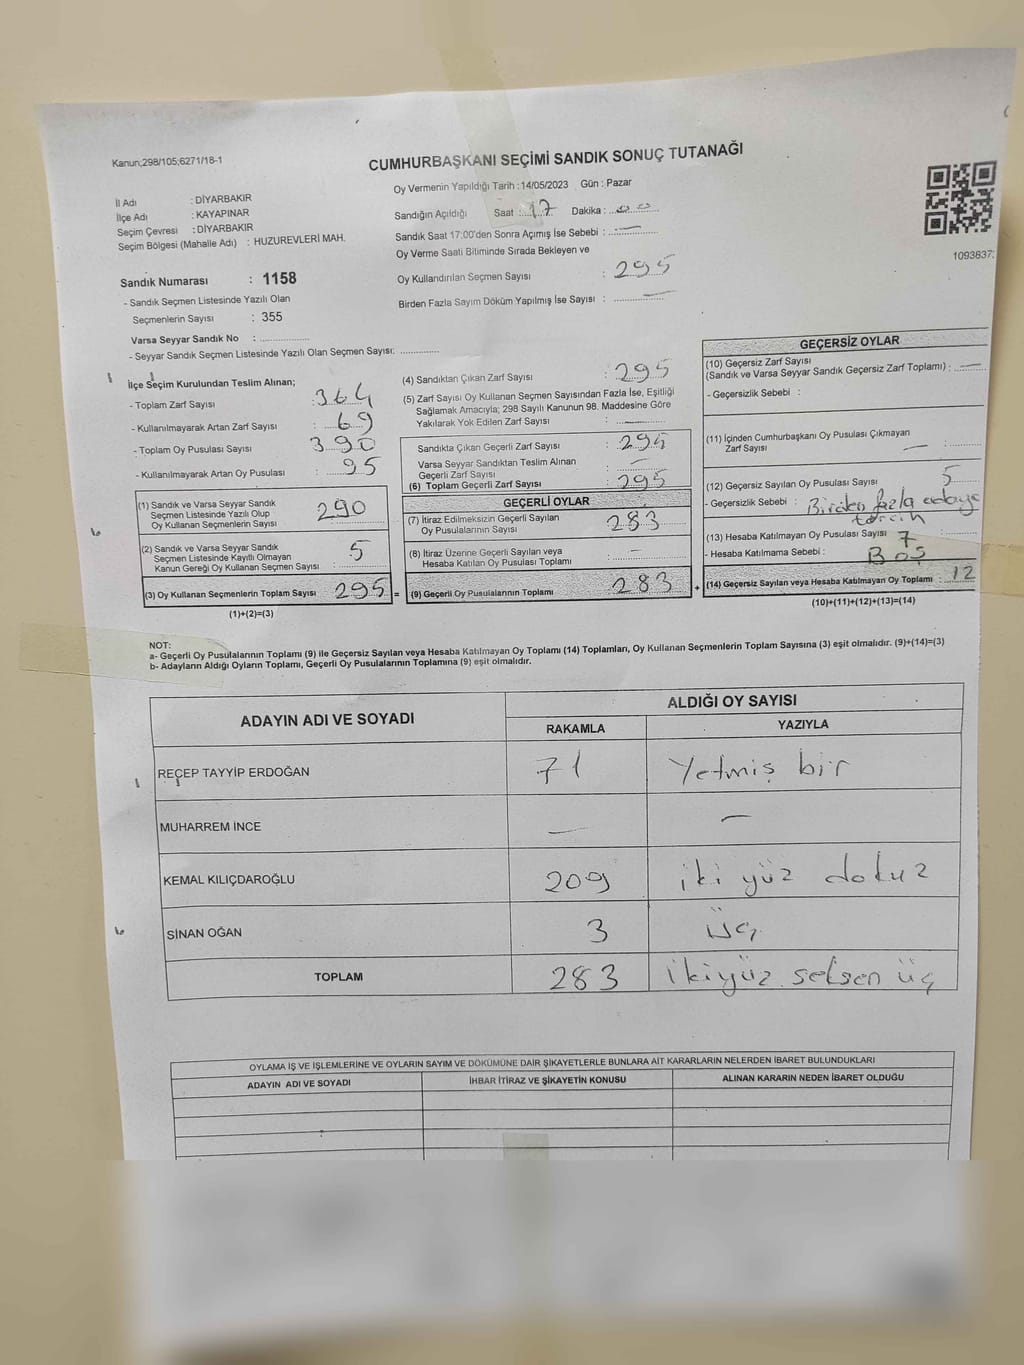 Kanun;298/105;6271/18-1
CUMHURBAŞKANI SEÇİMİ SANDIK SONUÇ TUTANAĞI
İl Adı : DİYARBAKIR
İlçe Adı : KAYAPINAR
Seçim Çevresi : DİYARBAKIR
Seçim Bölgesi (Mahalle Adı) : HUZUREVLERİ MAH.
Sandık Numarası : 1158
- Sandık Seçmen Listesinde Yazılı Olan
Seçmenlerin Sayısı : 355
Varsa Seyyar Sandık No :
- Seyyar Sandık Seçmen Listesinde Yazılı Olan Seçmen Sayısı:
Oy Vermenin Yapıldığı Tarih : 14/05/2023 Gün : Pazar
Sandığın Açıldığı Saat : 17 Dakika : 00
Sandık Saat 17:00'den Sonra Açımış İse Sebebi : —
Oy Verme Saati Bitiminde Sırada Bekleyen ve
Oy Kullandırılan Seçmen Sayısı : 295
Birden Fazla Sayım Döküm Yapılmış İse Sayısı : —
1093637:
İlçe Seçim Kurulundan Teslim Alınan;
- Toplam Zarf Sayısı : 364
- Kullanılmayarak Artan Zarf Sayısı : 69
- Toplam Oy Pusulası Sayısı : 390
- Kullanılmayarak Artan Oy Pusulası : 95
(1) Sandık ve Varsa Seyyar Sandık
Seçmen Listesinde Yazılı Olup
Oy Kullanan Seçmenlerin Sayısı : 290
(2) Sandık ve Varsa Seyyar Sandık
Seçmen Listesinde Kayıtlı Olmayan
Kanun Gereği Oy Kullanan Seçmen Sayısı : 5
(3) Oy Kullanan Seçmenlerin Toplam Sayısı : 295 =
(1)+(2)=(3)
(4) Sandıktan Çıkan Zarf Sayısı : 295
(5) Zarf Sayısı Oy Kullanan Seçmen Sayısından Fazla İse, Eşitliği
Sağlamak Amacıyla; 298 Sayılı Kanunun 98. Maddesine Göre
Yakılarak Yok Edilen Zarf Sayısı : —
Sandıkta Çıkan Geçerli Zarf Sayısı : 295
Varsa Seyyar Sandıktan Teslim Alınan
Geçerli Zarf Sayısı : —
(6) Toplam Geçerli Zarf Sayısı : 295
GEÇERLİ OYLAR
(7) İtiraz Edilmeksizin Geçerli Sayılan
Oy Pusulalarının Sayısı : 283
(8) İtiraz Üzerine Geçerli Sayılan veya
Hesaba Katılan Oy Pusulası Toplamı : —
(9) Geçerli Oy Pusulalarının Toplamı : 283 +
GEÇERSİZ OYLAR
(10) Geçersiz Zarf Sayısı
(Sandık ve Varsa Seyyar Sandık Geçersiz Zarf Toplamı) : —
- Geçersizlik Sebebi :
(11) İçinden Cumhurbaşkanı Oy Pusulası Çıkmayan
Zarf Sayısı : —
(12) Geçersiz Sayılan Oy Pusulası Sayısı : 5
- Geçersizlik Sebebi : Birden fazla adaya
tercih
(13) Hesaba Katılmayan Oy Pusulası Sayısı 7
- Hesaba Katılmama Sebebi : BOŞ
(14) Geçersiz Sayılan veya Hesaba Katılmayan Oy Toplamı : 12
(10)+(11)+(12)+(13)=(14)
NOT:
a- Geçerli Oy Pusulalarının Toplamı (9) ile Geçersiz Sayılan veya Hesaba Katılmayan Oy Toplamı (14) Toplamları, Oy Kullanan Seçmenlerin Toplam Sayısına (3) eşit olmalıdır. (9)+(14)=(3)
b- Adayların Aldığı Oyların Toplamı, Geçerli Oy Pusulalarının Toplamına (9) eşit olmalıdır.
ADAYIN ADI VE SOYADI
ALDIĞI OY SAYISI
RAKAMLA YAZIYLA
RECEP TAYYİP ERDOĞAN 71 Yetmiş bir
MUHARREM İNCE — —
KEMAL KILIÇDAROĞLU 209 iki yüz dokuz
SİNAN OĞAN 3 üç
TOPLAM 283 ikiyüz seksen üç
OYLAMA İŞ VE İŞLEMLERİNE VE OYLARIN SAYIM VE DÖKÜMÜNE DAİR ŞİKAYETLERLE BUNLARA AİT KARARLARIN NELERDEN İBARET BULUNDUKLARI
ADAYIN ADI VE SOYADI İHBAR İTİRAZ VE ŞİKAYETİN KONUSU ALINAN KARARIN NEDEN İBARET OLDUĞU